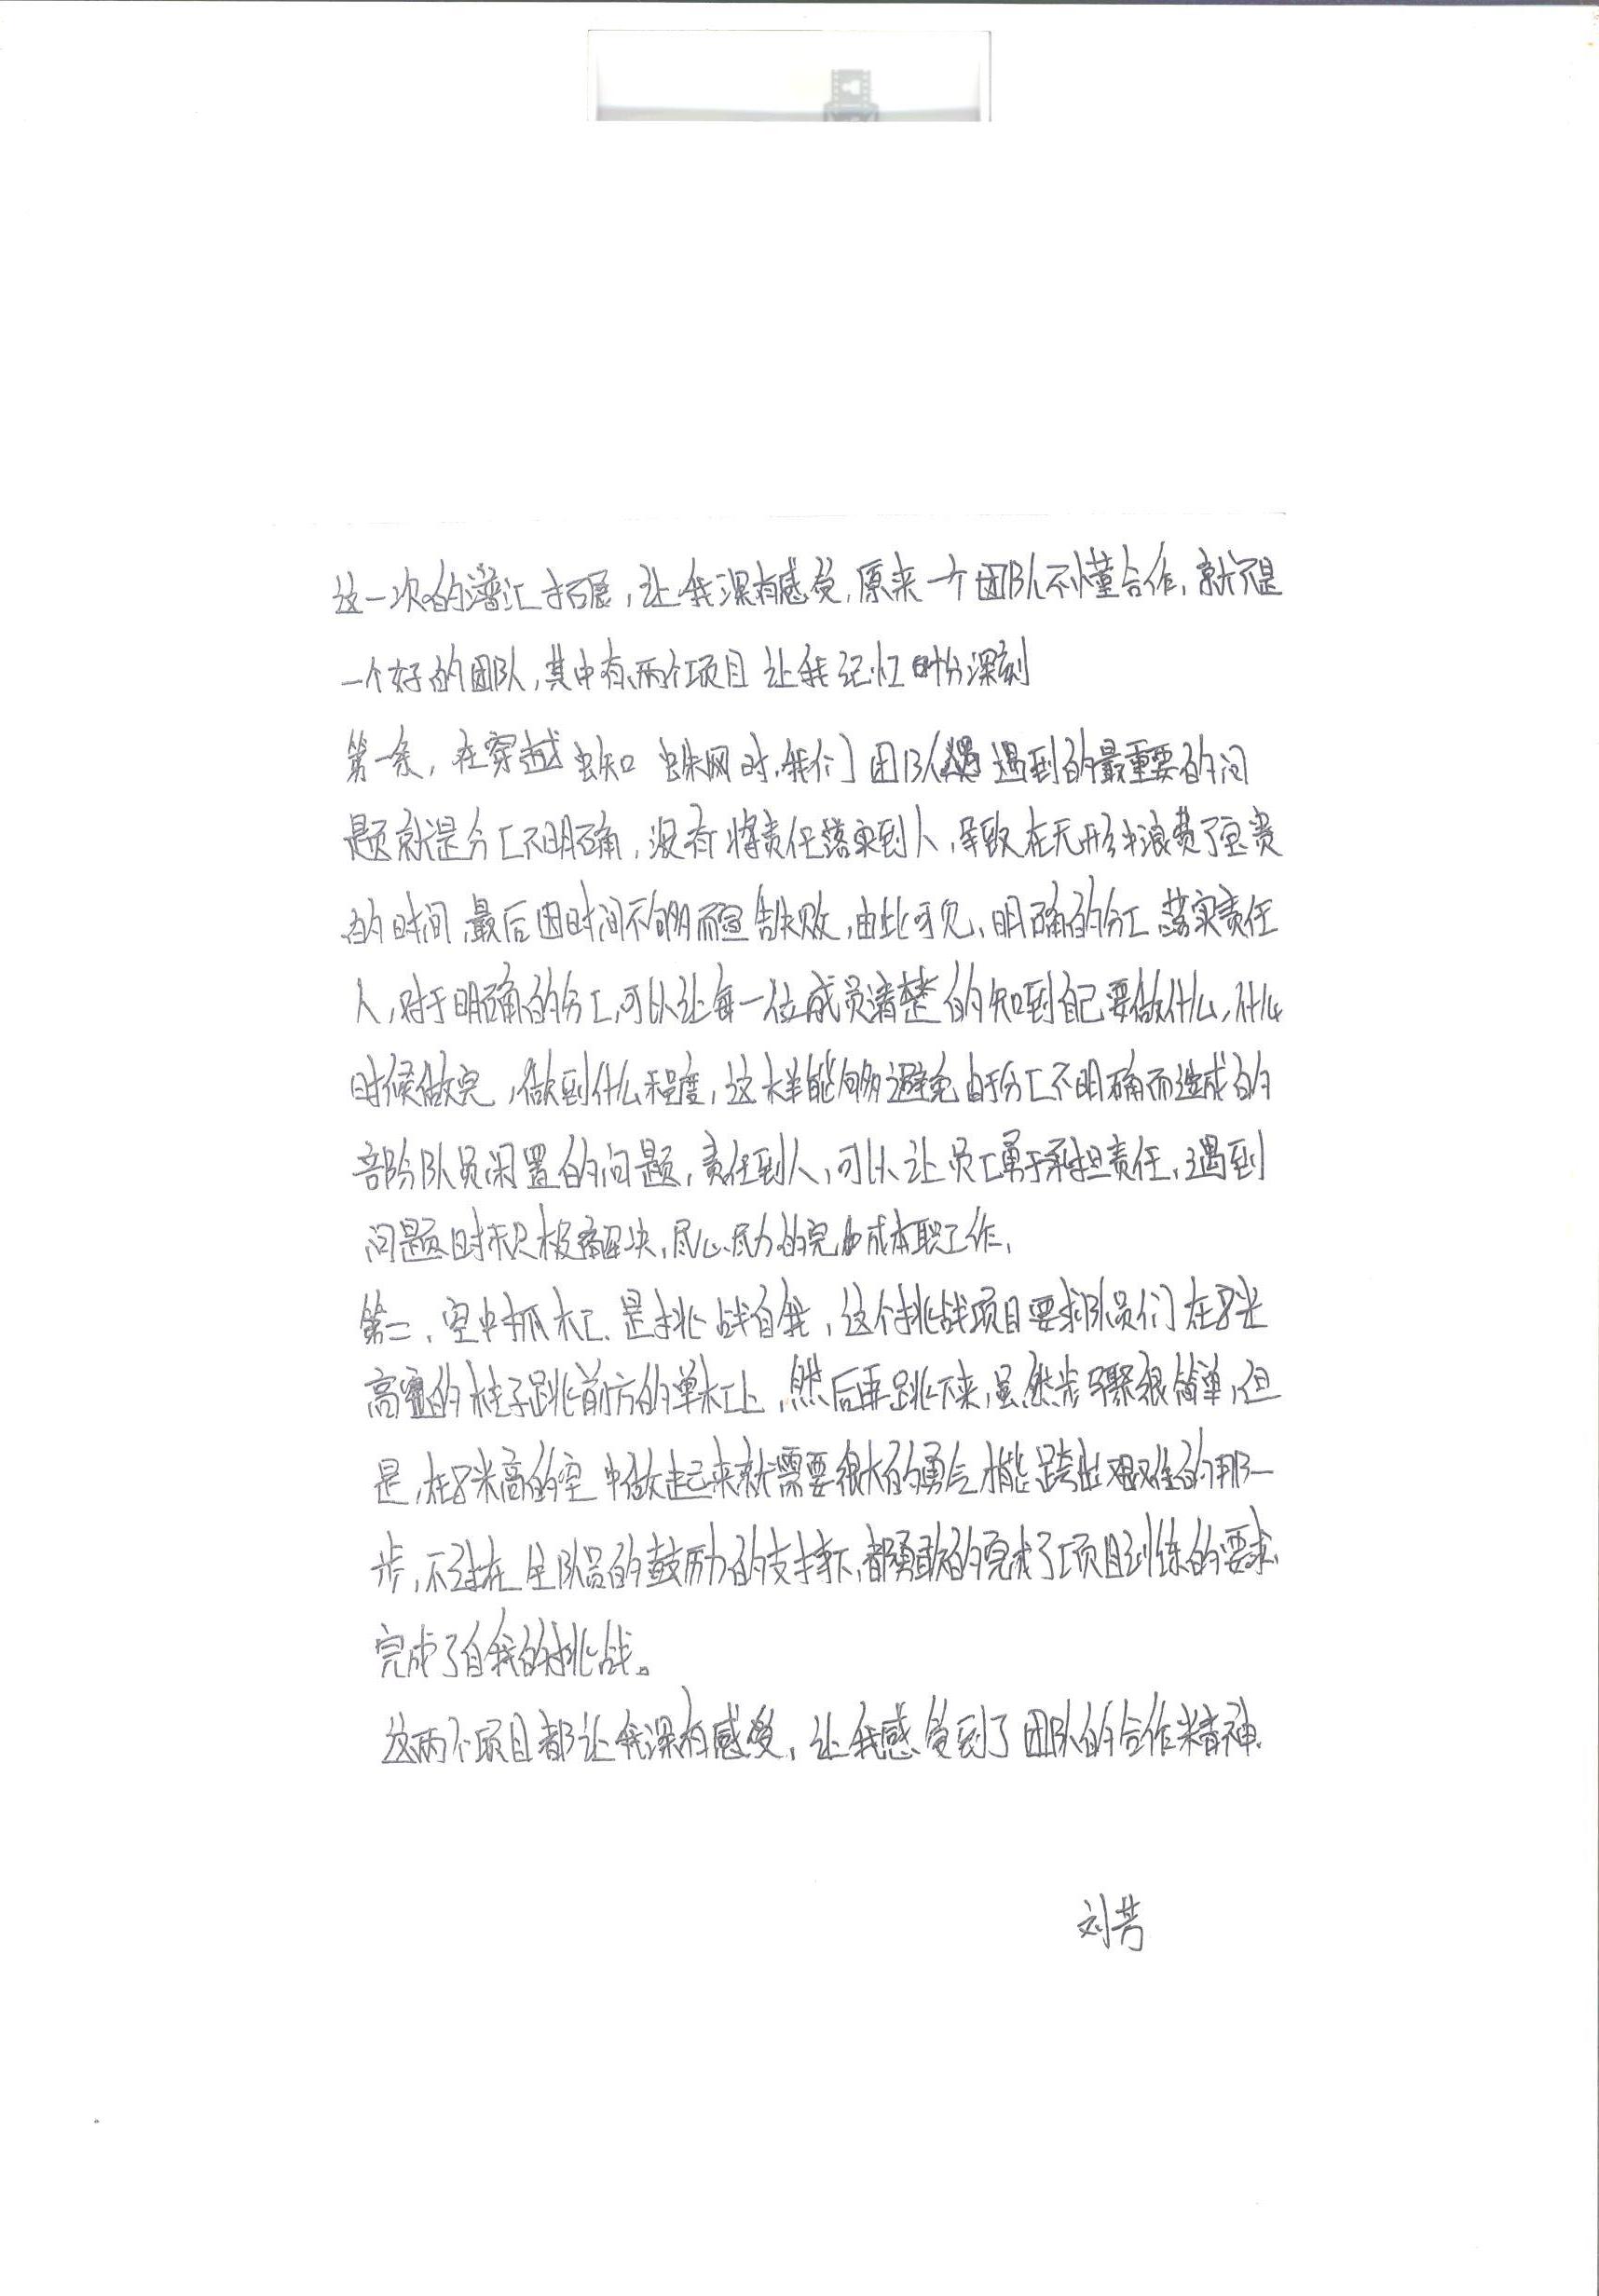 这一次的潽汇拓展,让我深有感受,原来一个团队不懂合作,就不是
一个好的团队,其中有两个项目让我记忆时分深刻
第一条,在穿越蜘蛛网时,我们团队遇到的最重要的问
题就是分工不明确,没有将责任落实到人,导致在无形中浪费了宝贵
的时间,最后因时间不够而宣告失败,由此可见,明确的分工、落实责任
人,对于明确的分工,可以让每一位成员清楚的知到自己要做什么,什么
时候做完,做到什么程度,这样能够避免由于分工不明确而造成的
部份队员闲置的问题,责任到人,可以让员工勇于承担责任,遇到
问题时积极解决,尽心尽力的完成本职工作,
第二,空中抓杠、是挑战自我,这个挑战项目要求队员们在8米
高的柱子跳前方的单杠上,然后再跳下来,虽然步骤很简单,但
是,在8米高的空中做起来就需要很大的勇气才能跨出艰难的那一
步,不过在全队员的鼓励的支持下,都勇敢的完成了项目训练的要求,
完成了自我的挑战。
这两个项目都让我深有感受,让我感受到了团队的合作精神.
刘芳